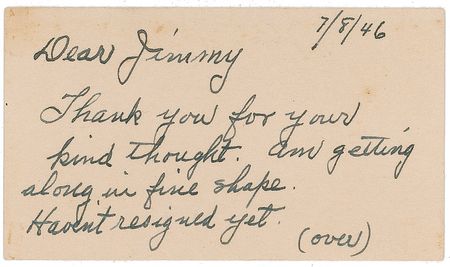 7/8/46
Dear Jimmy
Thank you for your
kind thought. Am getting
along in fine shape.
Havent resigned yet.
(over)